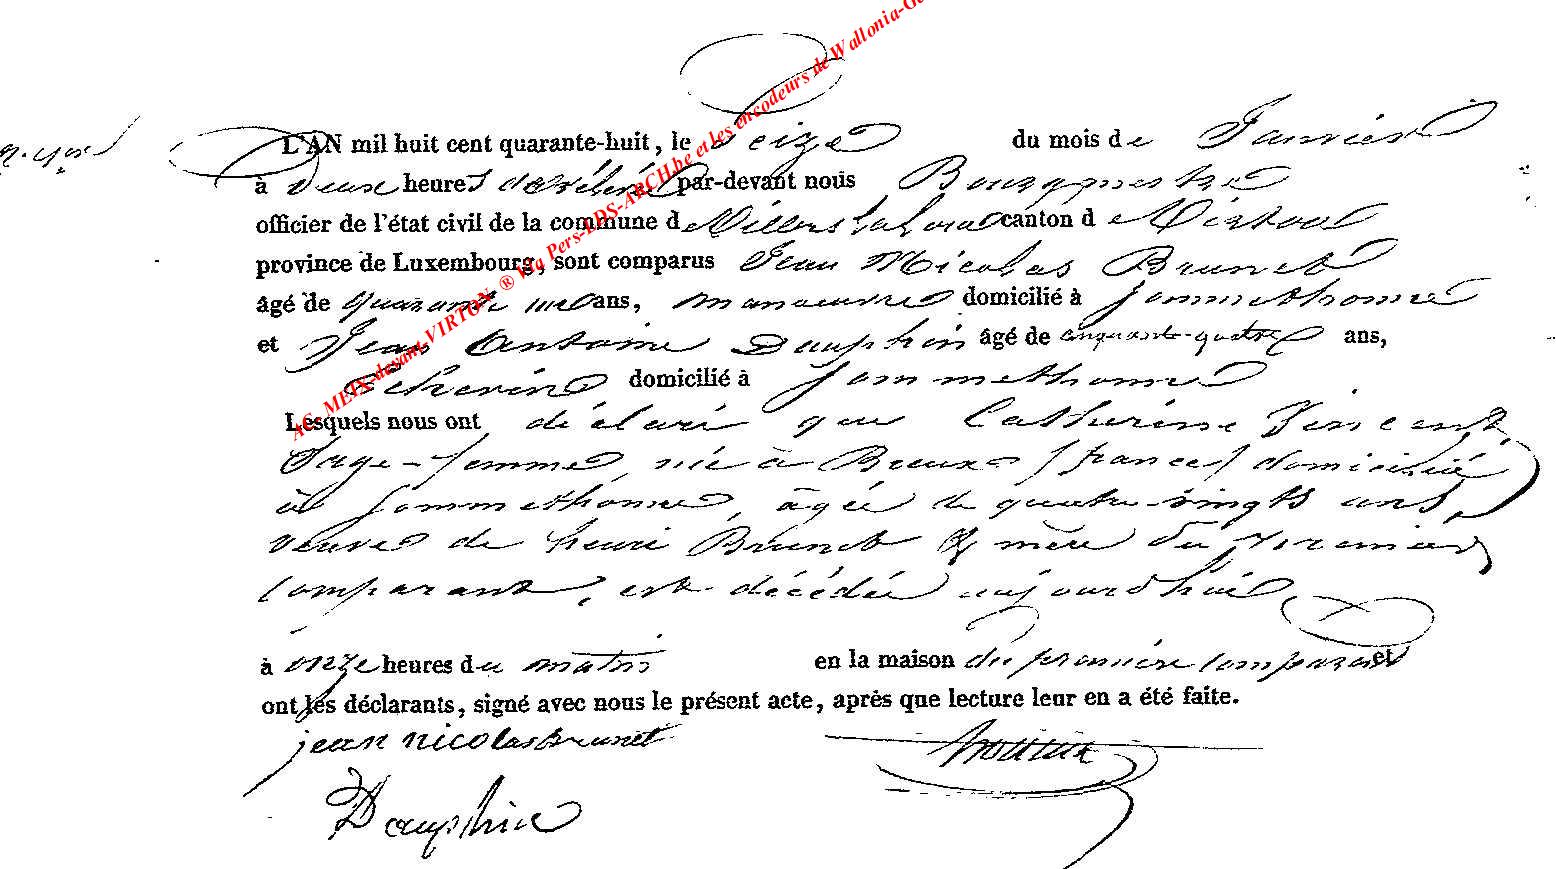 L'AN mil huit cent quarante-huit, le Seize du mois de Janvier
à deux heures de relevée par-devant nous Bourgmestre
officier de l'état civil de la commune de Villers la loue canton de Virton
province de Luxembourg, sont comparus Jean Nicolas Brunet
âgé de quarante ans, manoeuvre domicilié à Sommethonne
et Jean Antoine Dauphin âgé de cinquante-quatre ans,
Echevin domicilié à Sommethonne
Lesquels nous ont déclaré que Catherine Vincent,
Sage-femme, née à Breux (france) domiciliée
à Sommethonne, âgée de quatre-vingts ans,
veuve de henri Brunet & mère du premier
comparant, est décédée aujourd'hui
à onze heures du matin en la maison du premier comparant et
ont les déclarants, signé avec nous le présent acte, après que lecture leur en a été faite.
jean nicolas Brunet
Dauphin
AC. MEIX-devant-VIRTON ® Via Pers-EDS-ARCH.be et les encodeurs de Wallonia-Ge